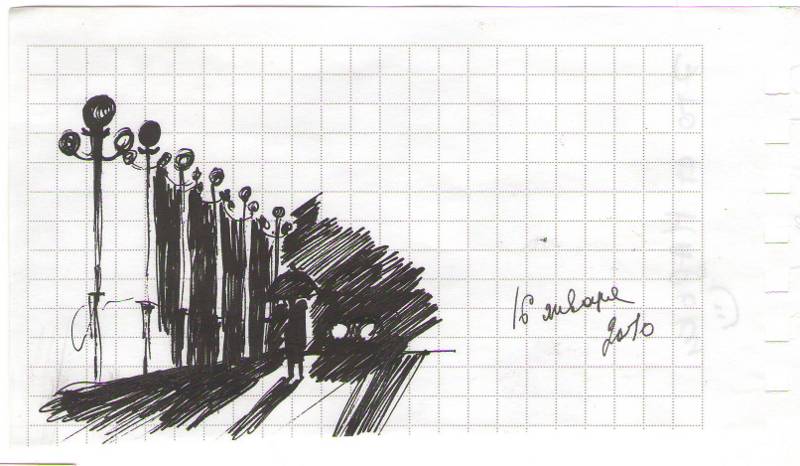 16 января
2010